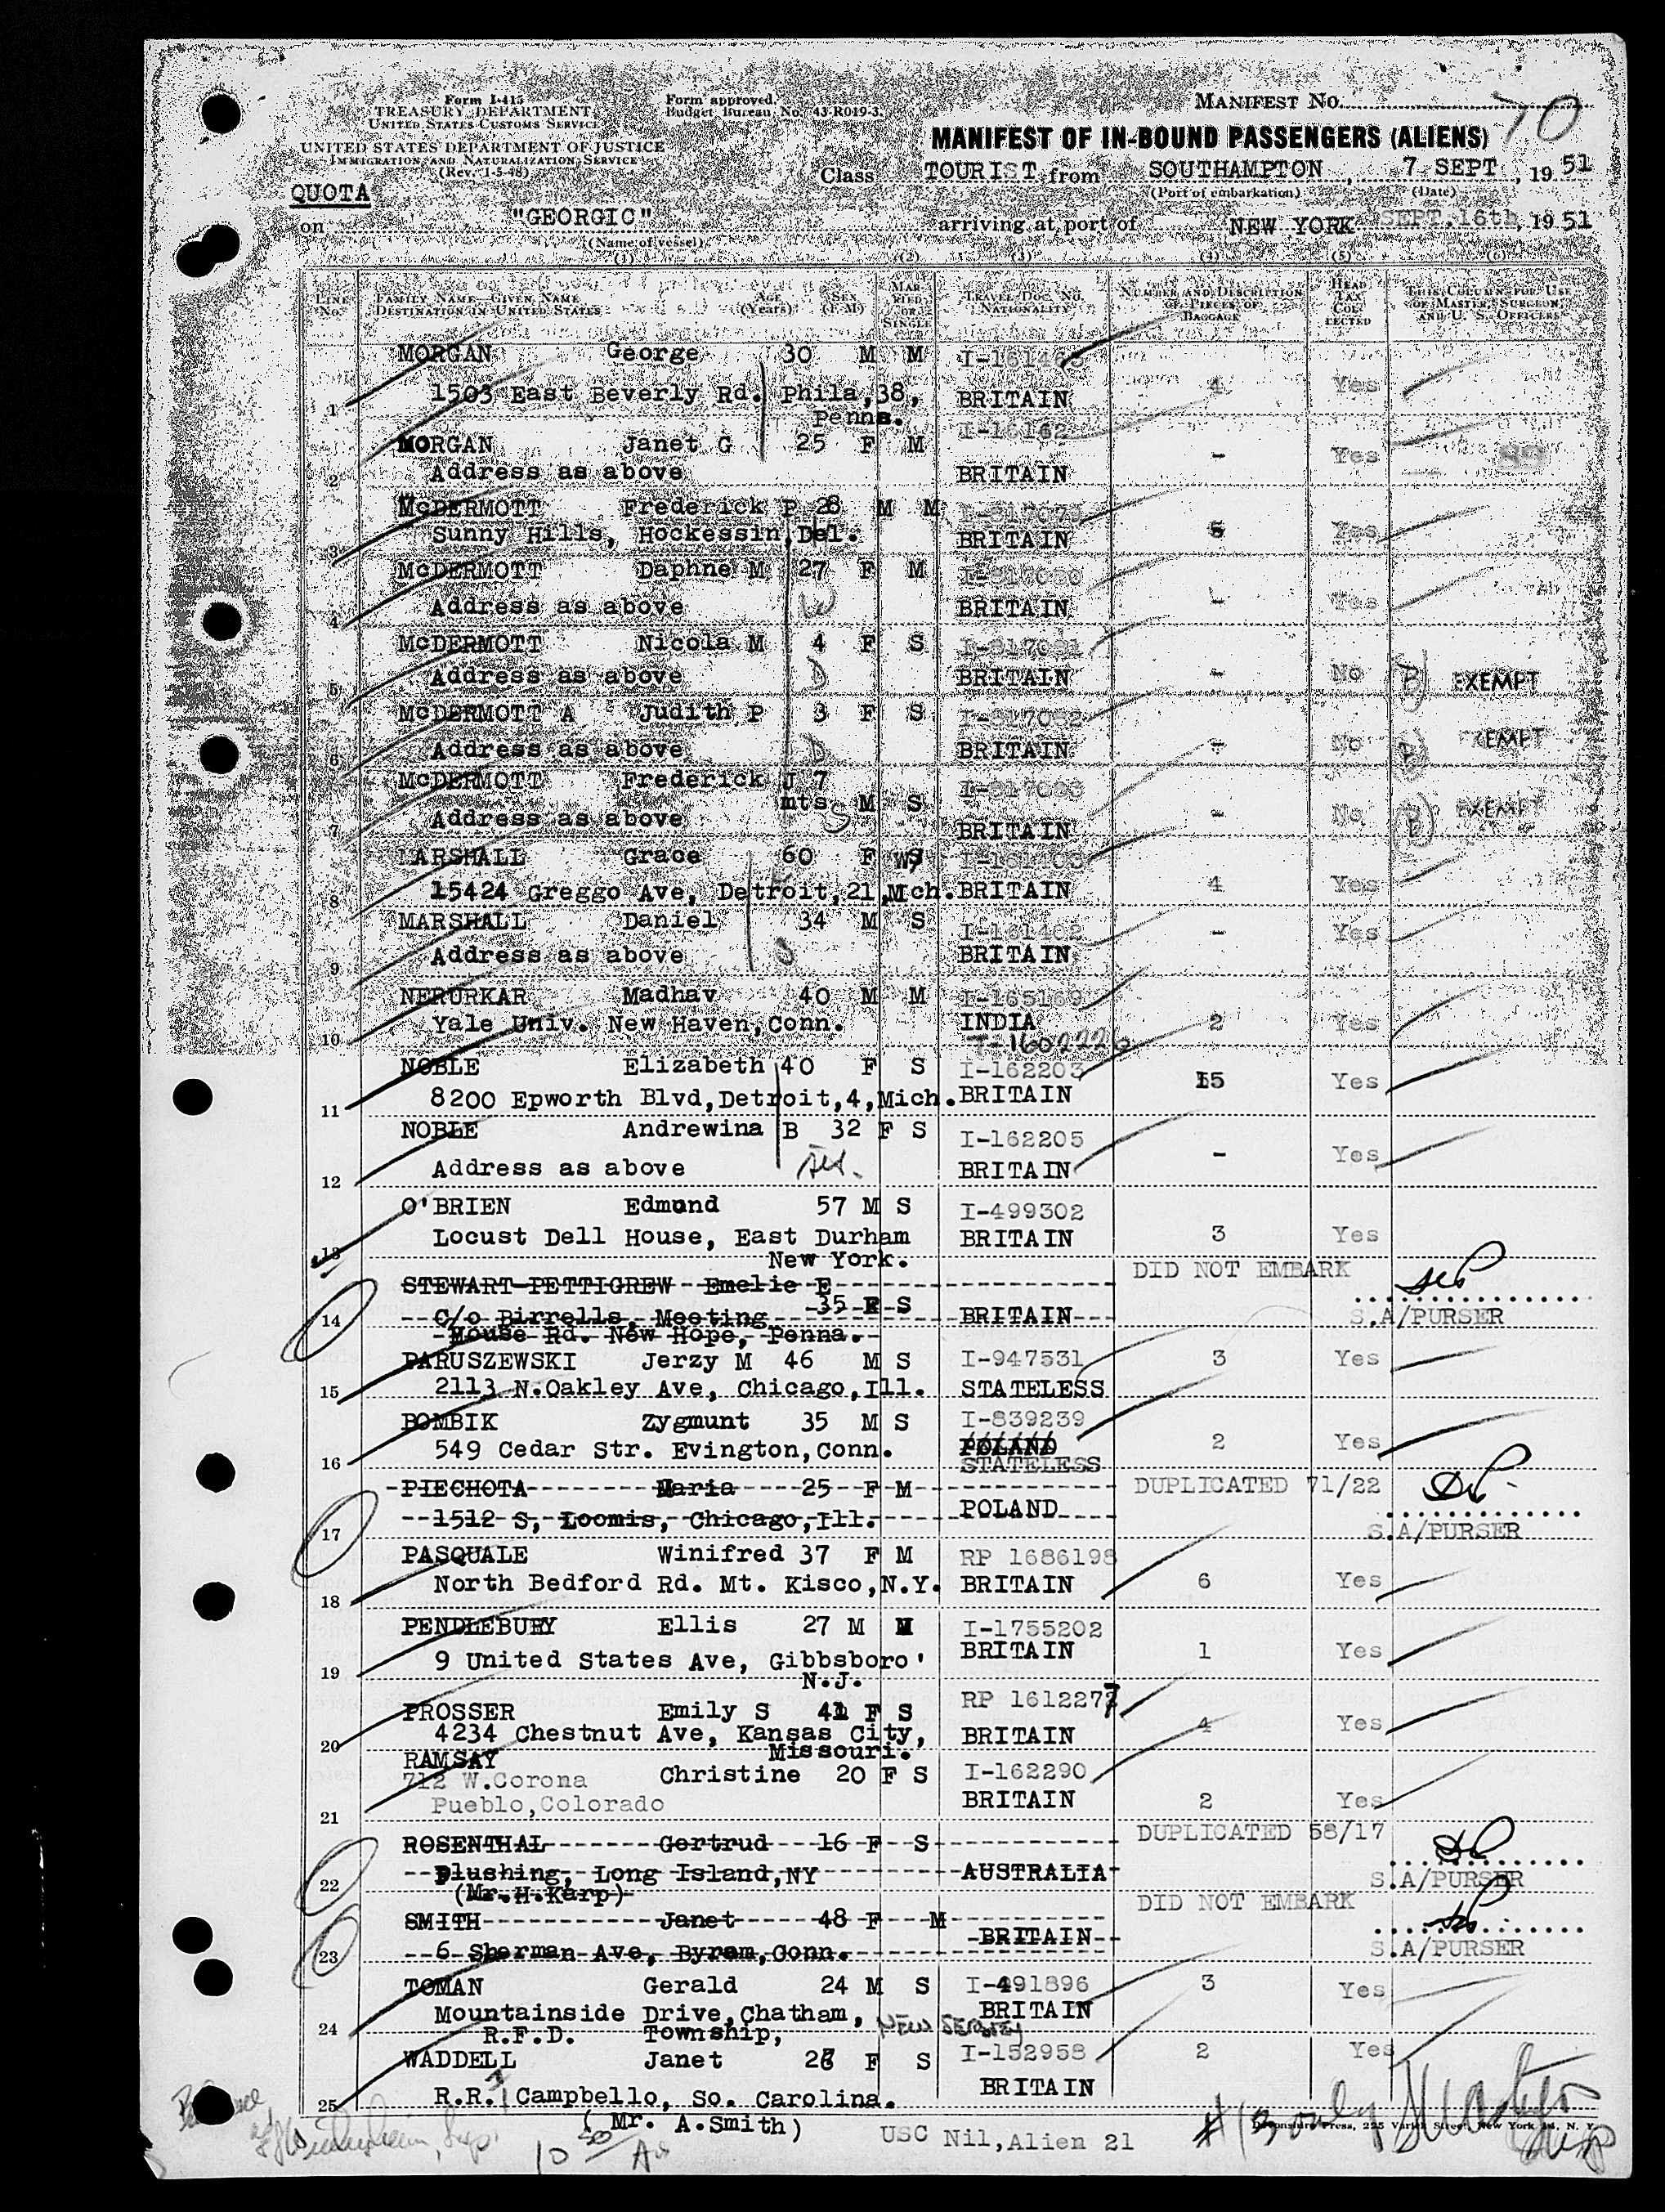 Form I-415
TREASURY DEPARTMENT
UNITED STATES CUSTOMS SERVICE
UNITED STATES DEPARTMENT OF JUSTICE
IMMIGRATION AND NATURALIZATION SERVICE
(Rev. 1-5-48)
Form approved.
Budget Bureau No. 43-R019-3.
MANIFEST NO. 70
MANIFEST OF IN-BOUND PASSENGERS (ALIENS)
QUOTA
Class TOURIST from SOUTHAMPTON, 7 SEPT, 19 51
(Port of embarkation) (Date)
on "GEORGIC" arriving at port of NEW YORK SEPT.16th, 19 51
(Name of vessel)
(1) (2) (3) (4) (5) (6)
LINE No. FAMILY NAME—GIVEN NAME DESTINATION IN UNITED STATES AGE (Years) SEX (F-M) MARRIED OR SINGLE TRAVEL DOC. NO. NATIONALITY NUMBER AND DESCRIPTION OF PIECES OF BAGGAGE HEAD TAX COLLECTED THIS COLUMN FOR USE OF MASTER, SURGEON, AND U. S. OFFICERS
MORGAN George 30 M M
1 1503 East Beverly Rd. Phila,38, BRITAIN 4 Yes
Penna.
MORGAN Janet G 25 F M
2 Address as above BRITAIN - Yes
McDERMOTT Frederick P 28 M M
3 Sunny Hills, Hockessin, Del. BRITAIN 5 Yes
McDERMOTT Daphne M 27 F M
4 Address as above BRITAIN - Yes
McDERMOTT Nicola M 4 F S
5 Address as above BRITAIN - No EXEMPT
McDERMOTT A Judith P 3 F S
6 Address as above BRITAIN - No
McDERMOTT Frederick J 7
mts M S
7 Address as above BRITAIN - No EXEMPT
MARSHALL Grace 60 F W
8 15424 Greggo Ave, Detroit,21,Mich. BRITAIN 4 Yes
MARSHALL Daniel 34 M S I-161462
9 Address as above BRITAIN - Yes
NERURKAR Madhav 40 M M I-165169
10 Yale Univ. New Haven,Conn. INDIA 2 Yes
NOBLE Elizabeth 40 F S I-162203
11 8200 Epworth Blvd,Detroit,4,Mich. BRITAIN 15 Yes
NOBLE Andrewina B 32 F S I-162205
12 Address as above BRITAIN - Yes
O'BRIEN Edmund 57 M S I-499302
13 Locust Dell House, East Durham BRITAIN 3 Yes
New York.
STEWART-PETTIGREW Emelie E DID NOT EMBARK
35 F S
14 C/o Birrells, Meeting BRITAIN S.A/PURSER
House Rd. New Hope, Penna.
PARUSZEWSKI Jerzy M 46 M S I-947531 3 Yes
15 2113 N.Oakley Ave, Chicago,Ill. STATELESS
BOMBIK Zygmunt 35 M S I-839239
16 549 Cedar Str. Evington,Conn. POLAND 2 Yes
STATELESS
PIECHOTA Maria 25 F M DUPLICATED 71/22
17 1512 S, Loomis, Chicago,Ill. POLAND S.A/PURSER
PASQUALE Winifred 37 F M RP 1686198
18 North Bedford Rd. Mt. Kisco,N.Y. BRITAIN 6 Yes
PENDLEBURY Ellis 27 M M I-1755202
19 9 United States Ave, Gibbsboro' BRITAIN 1 Yes
N.J.
PROSSER Emily S 41 F S RP 1612277
20 4234 Chestnut Ave, Kansas City, BRITAIN 4 Yes
Missouri.
RAMSAY
712 W.Corona Christine 20 F S I-162290
21 Pueblo,Colorado BRITAIN 2 Yes
ROSENTHAL Gertrud 16 F S DUPLICATED 58/17
22 Flushing, Long Island,NY AUSTRALIA S.A/PURSER
(Mr.H.Karp)
SMITH Janet 48 F M DID NOT EMBARK
23 6 Sherman Ave, Byram,Conn. BRITAIN S.A/PURSER
TOMAN Gerald 24 M S I-491896 3 Yes
24 Mountainside Drive,Chatham, BRITAIN
R.F.D. Township, NEW JERSEY
WADDELL Janet F S I-152958 2 Yes
25 R.R.1 Campbello, So. Carolina. BRITAIN
(Mr. A.Smith)
USC Nil, Alien 21